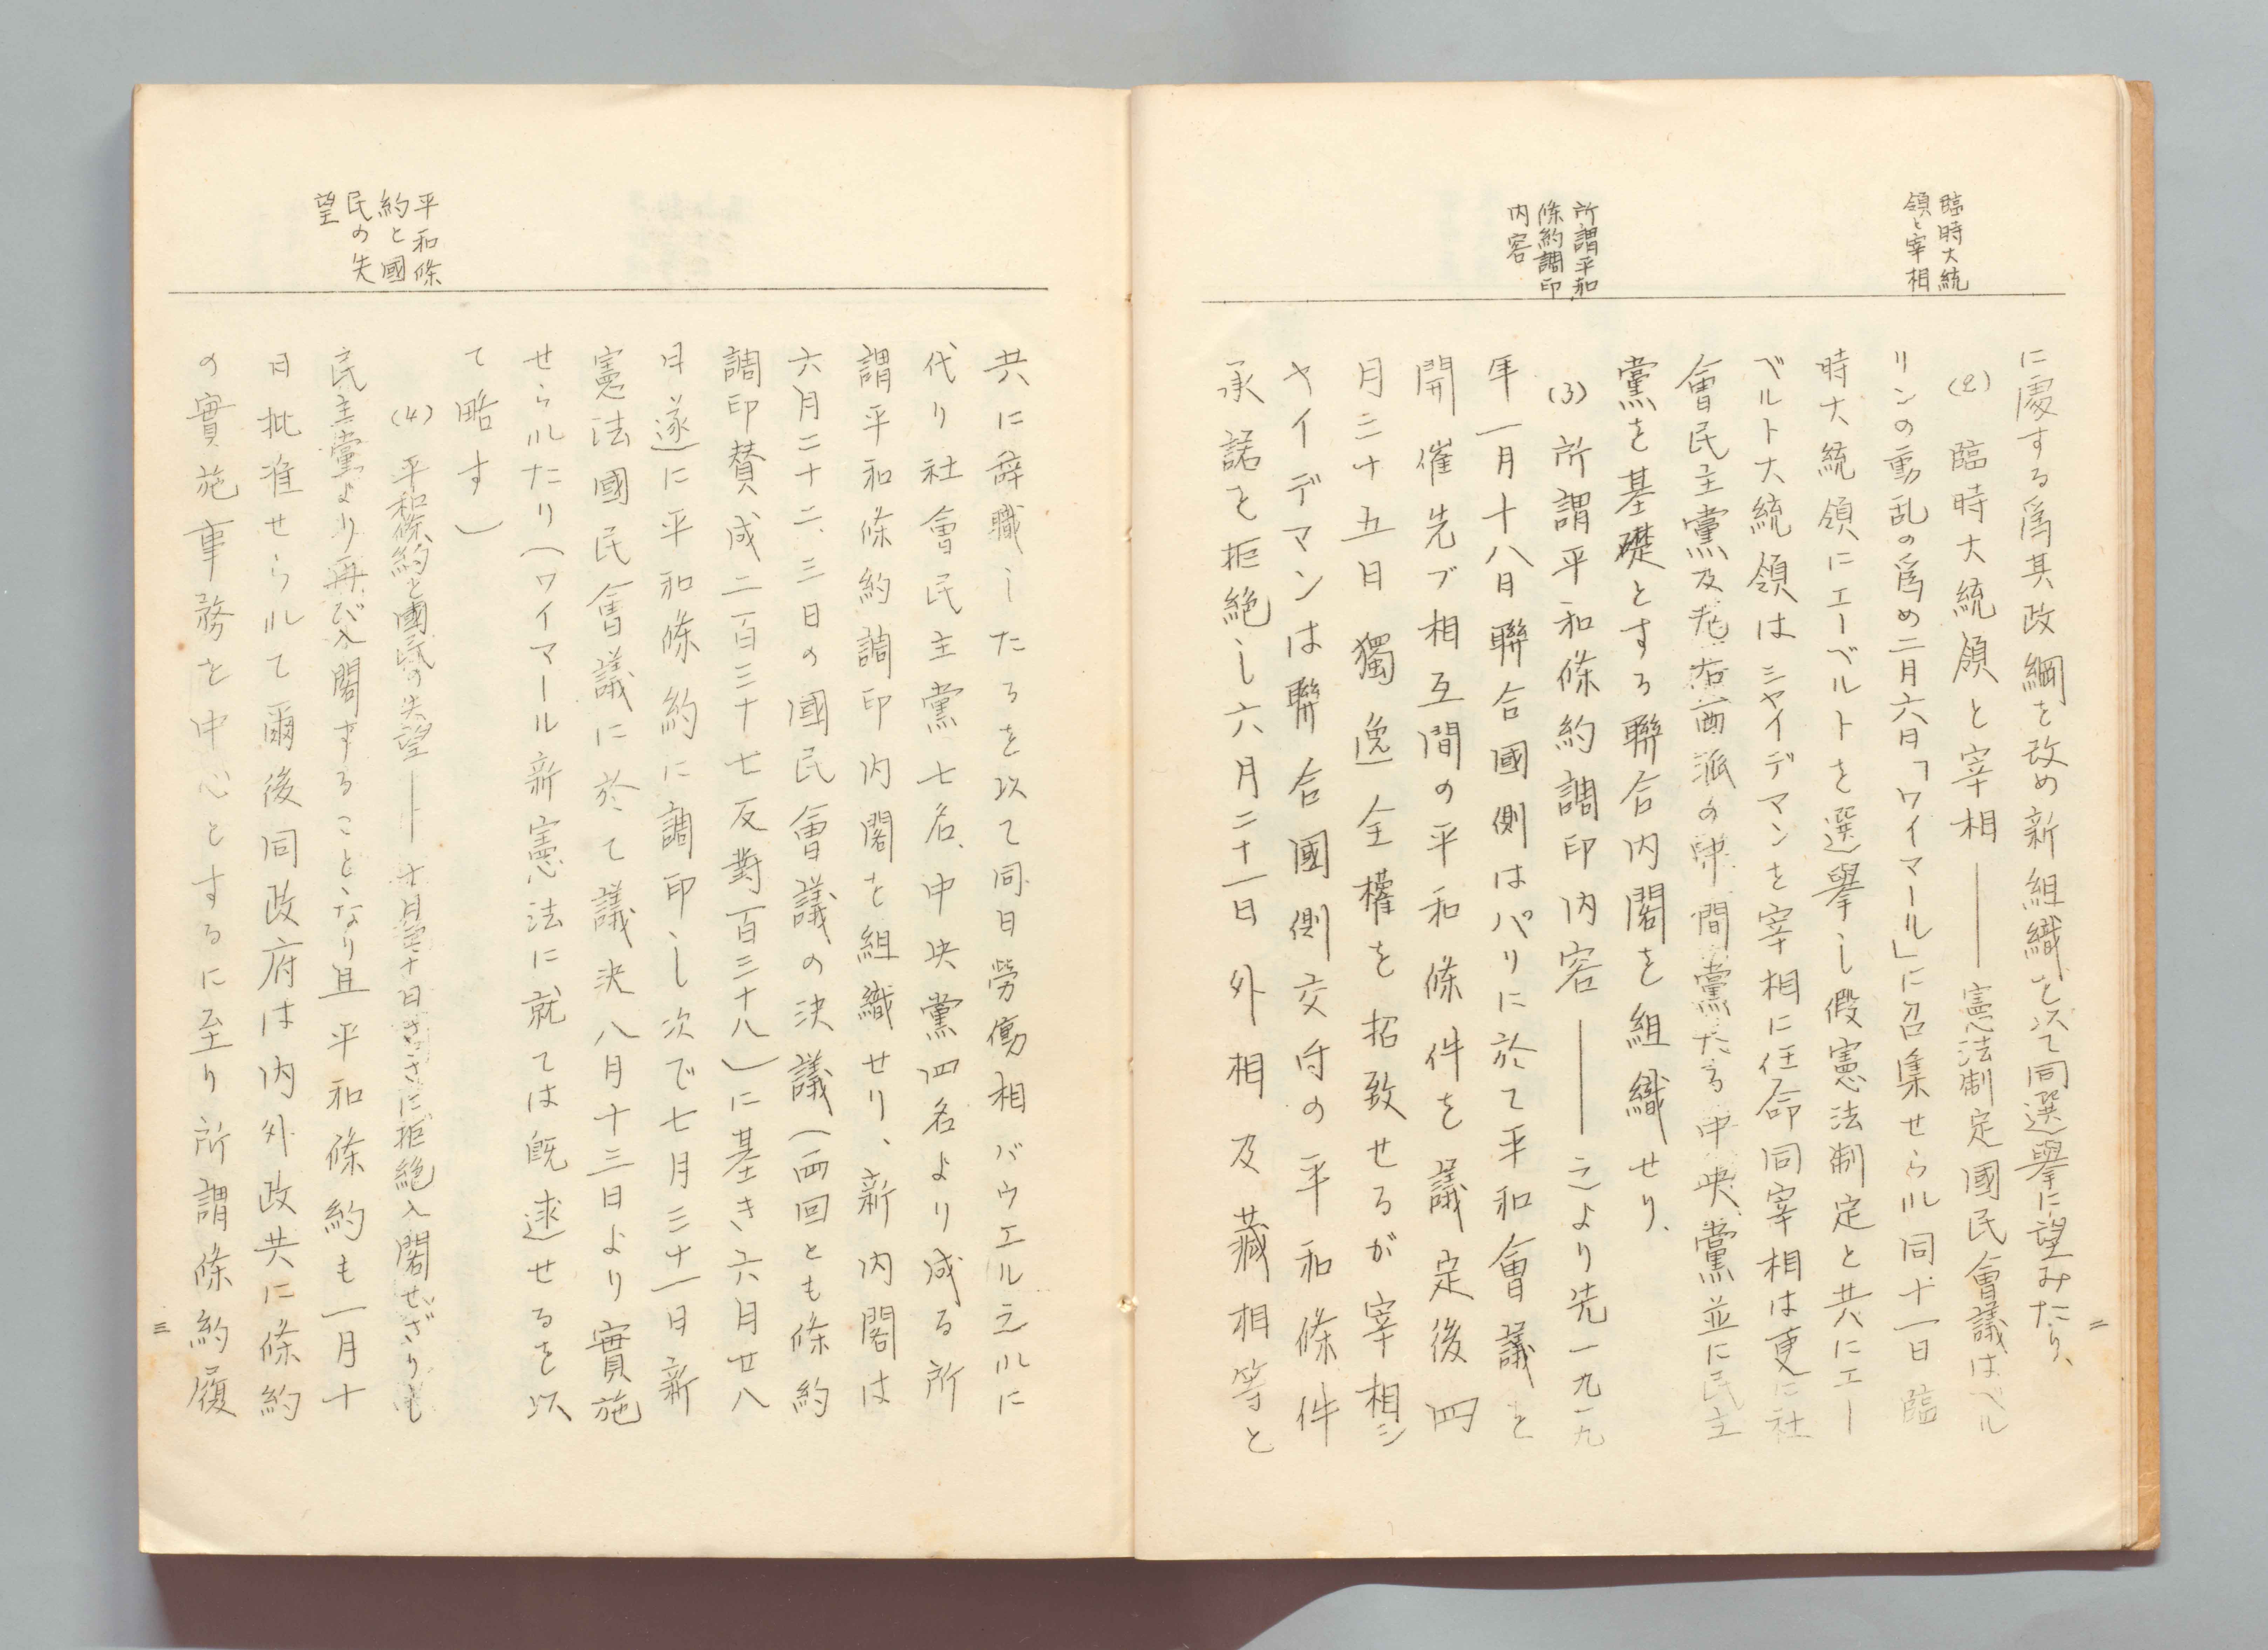 臨時大統
領と宰相
所謂平和
條約調印
内容
に處する爲其政綱を改め新組織を以て同選擧に望みたり、
(2) 臨時大統領と宰相――憲法制定國民會議はベル
リンの動乱の爲め二月六日「ワイマール」に召集せらル同十一日臨
時大統領にエーベルトを選擧し假憲法制定と共にエー
ベルト大統領はシャイデマンを宰相に任命同宰相は更に社
會民主黨及老右両派の中間黨たる中央黨並に民主
黨を基礎とする聯合内閣を組織せり、
(3) 所謂平和條約調印内容――之より先一九一九
年一月十八日聯合國側はパリに於て平和會議を
開催先ヅ相互間の平和條件を議定後四
月二十五日獨逸全權を招致せるが宰相シ
ヤイデマンは聯合國側交付の平和條件
承諾を拒絶し六月二十一日外相及藏相等と
二
平和條
約と國
民の失
望
共に辞職したるを以て同日勞働相バウエル之ルに
代り社會民主黨七名、中央黨四名より成る所
謂平和條約調印内閣を組織せり、新内閣は
六月二十二、三日の國民會議の決議(両回とも條約
調印賛成二百三十七反對百三十八)に基き六月廿八
日遂に平和條約に調印し次で七月三十一日新
憲法國民會議に於て議決八月十三日より實施
せらルたり(ワイマール新憲法に就ては既述せるを以
て略す)
(4) 平和條約と國民の失望――十月三十日さきに拒絶入閣せざりし
民主黨より再び入閣することとなり且平和條約も一月十
日批准せらルて爾後同政府は内外政共に條約
の實施事務を中心とするに至り所謂條約履
三